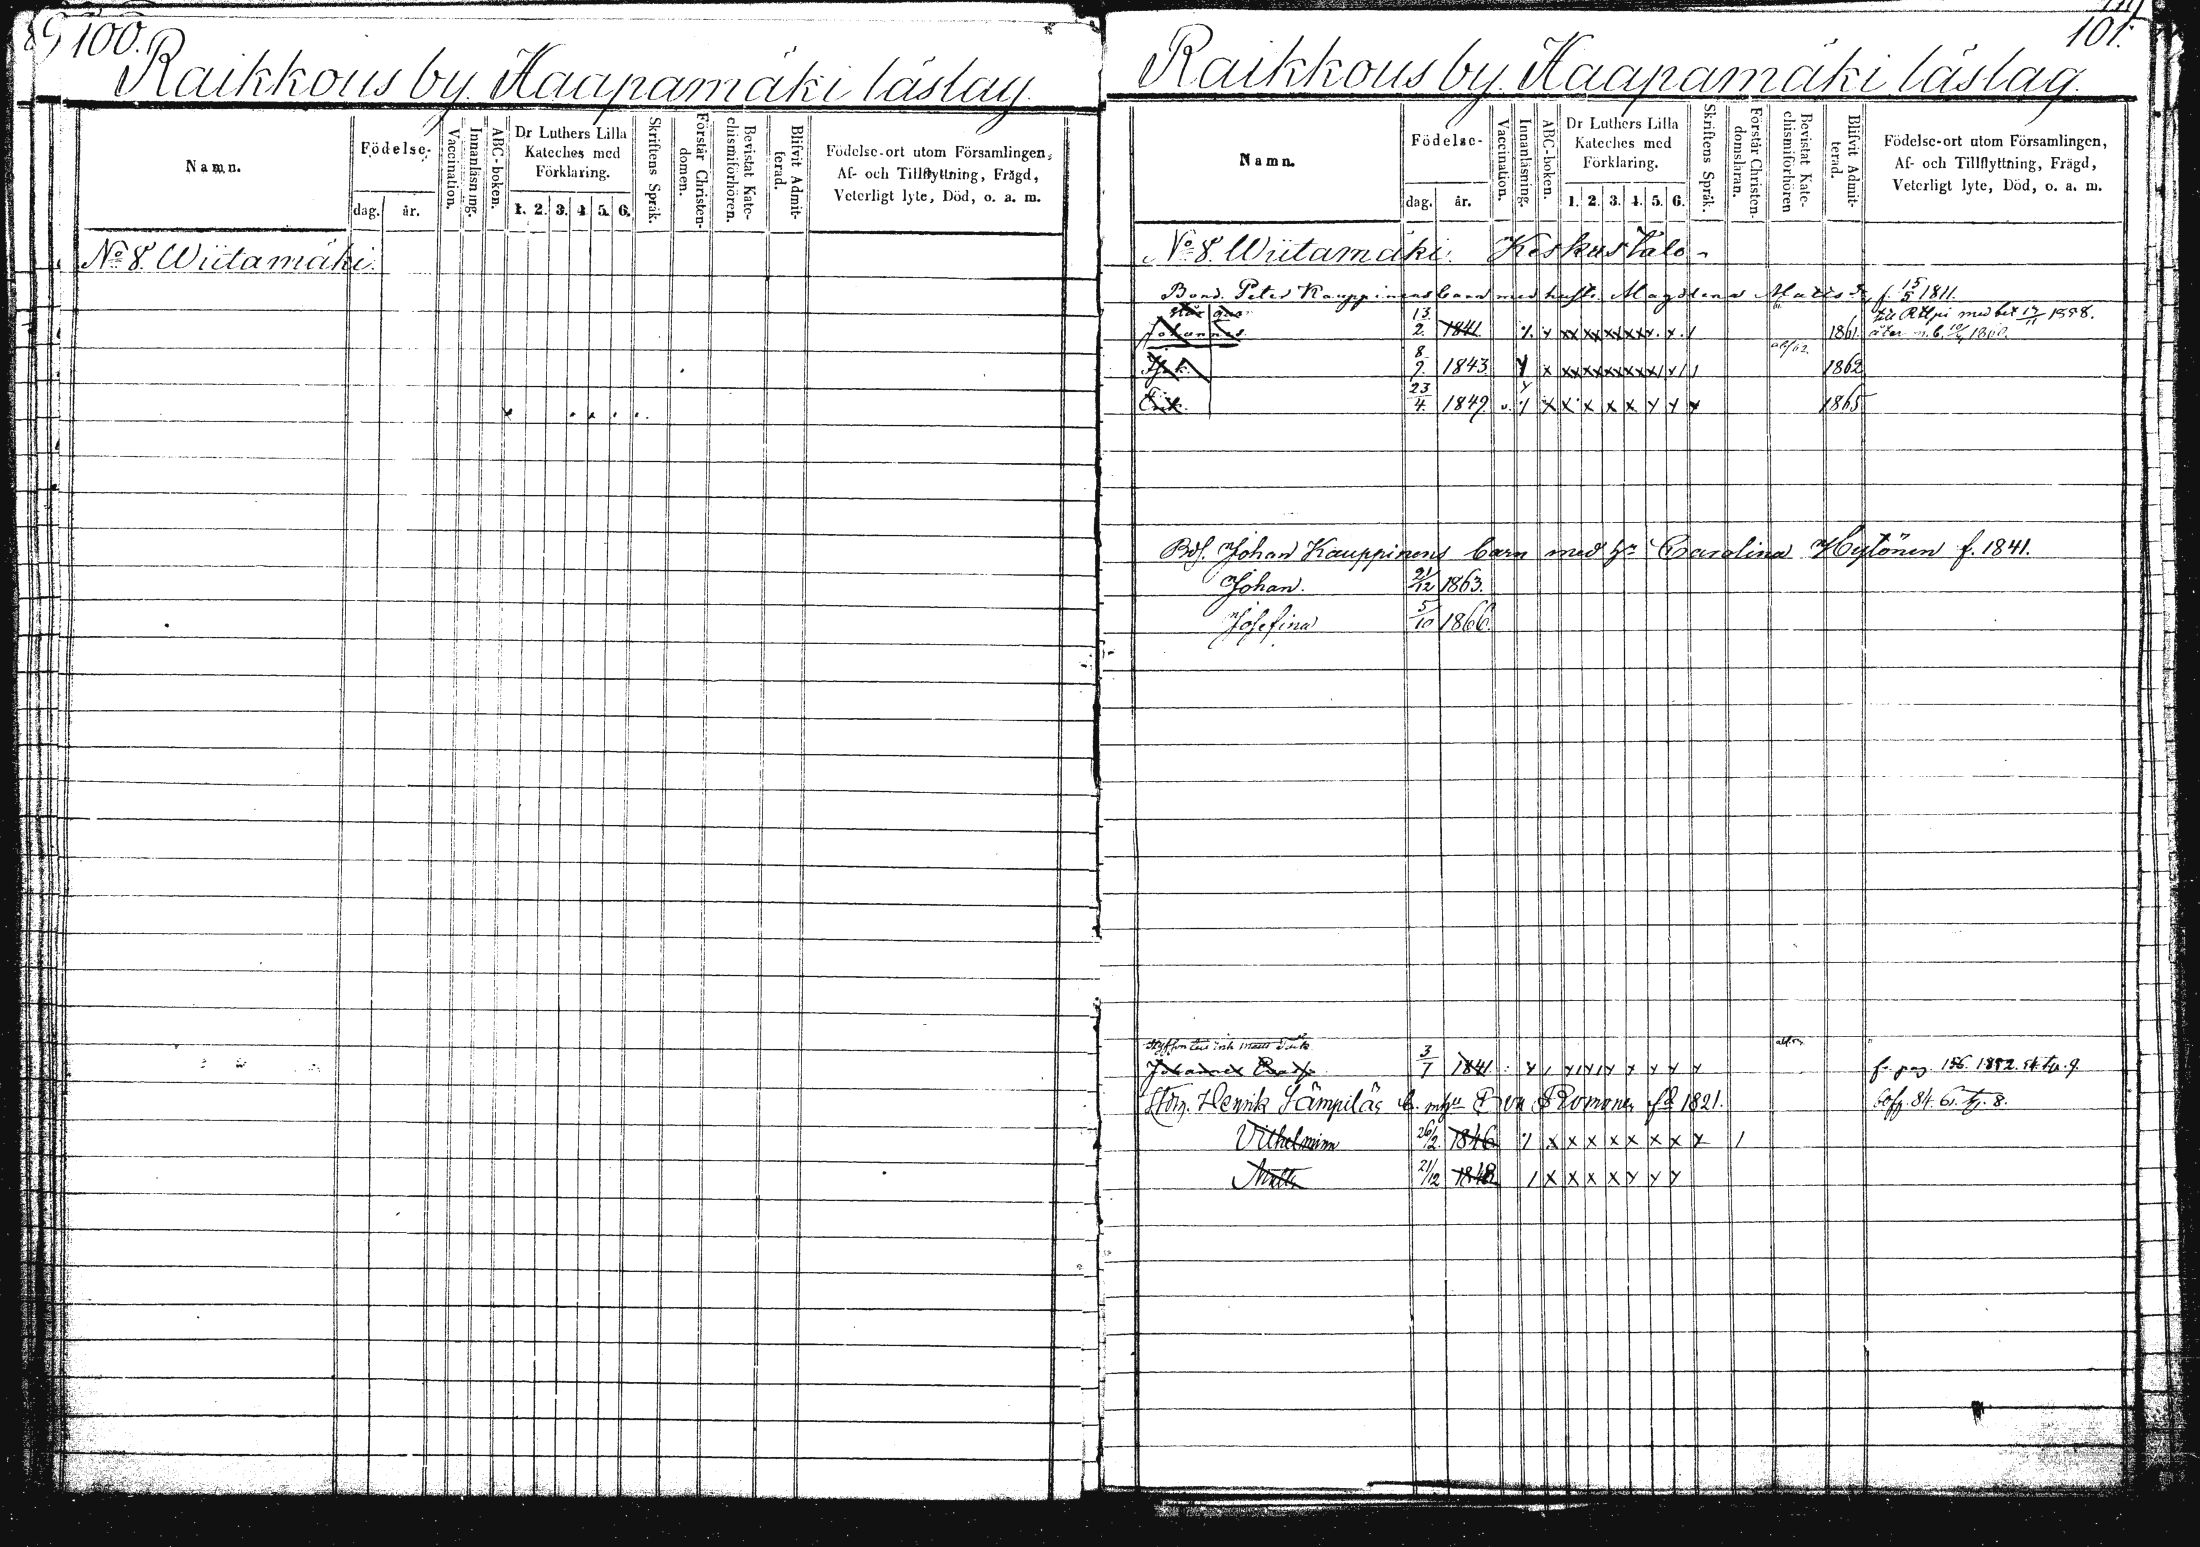 100.
Raikkous by. Haapamäki läslag.
Namn.
Födelse-
dag. år.
Vaccination.
Innanläsning.
ABC-boken.
Dr Luthers Lilla
Kateches med
Förklaring.
1. 2. 3. 4. 5. 6.
Skriftens Språk.
Förstår Christen-
domen.
Bevistat Kate-
chismiförhören.
Blifvit Admit-
terad.
Födelse-ort utom Församlingen,
Af- och Tillflyttning, Frägd,
Veterligt lyte, Död, o. a. m.
No 8. Wiitamäki.
101.
Raikkous by. Haapamäki läslag.
Namn.
Födelse-
dag. år.
Vaccination.
Innanläsning.
ABC-boken.
Dr Luthers Lilla
Kateches med
Förklaring.
1. 2. 3. 4. 5. 6.
Skriftens Språk.
Förstår Christen-
domsläran.
Bevistat Kate-
chismiförhören
Blifvit Admit-
terad.
Födelse-ort utom Församlingen,
Af- och Tillflyttning, Frägd,
Veterligt lyte, Död, o. a. m.
No 8. Wiitamäki. Keskustalo
Bond. Peter Kauppinens barn med hustr. Magdlena Matisdr f. 15/5 1811.
Johannes 13/2 1841 1861
8/9 1843 1862
Erik 23/4 1849 1865
Bdf. Johan Kauppinens barn med h:n Carolina Hytönen f. 1841.
Johan. 21/12 1863.
Josefina 5/10 1866.
3/7 1841 f. pag. 156. 1852.
Henrik 1821.
Vilhelmina 26/2 1846
Matts 21/12 1848